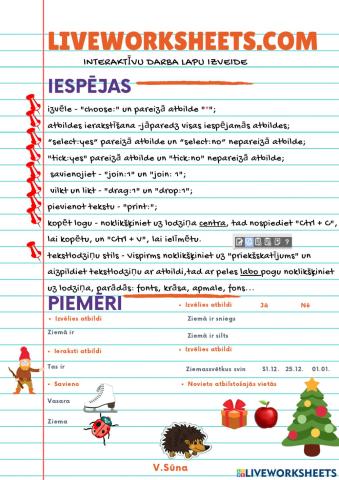 LIVEWORKSHEETS.COM
INTERAKTĪVU DARBA LAPU IZVEIDE
IESPĒJAS
izvēle - "choose:" un pareizā atbilde "*";
atbildes ierakstīšana -jāparedz visas iespējamās atbildes;
"select:yes" pareizā atbilde un "select:no" nepareizā atbilde;
"tick:yes" pareizā atbilde un "tick:no" nepareizā atbilde;
savienojiet - "join:1" un "join: 1";
vilkt un likt - "drag:1" un "drop:1";
pievienot tekstu - "print:";
kopēt logu - noklikšķiniet uz lodziņa centra, tad nospiediet "Ctrl + C",
lai kopētu, un "Ctrl + V", lai ielīmētu.
tekstlodziņu stils - Vispirms noklikšķiniet uz "priekšskatījums" un
aizpildiet tekstlodziņu ar atbildi,tad ar peles labo pogu noklikšķiniet
uz lodziņa, parādās: fonts, krāsa, apmale, fons...
PIEMĒRI
• Izvēlies atbildi Jā Nē
• Izvēlies atbildi
Ziemā ir sniegs
Ziemā ir
Ziemā ir silts
• Ieraksti atbildi
• Izvēlies atbildi
Tas ir
Ziemassvētkus svin 31.12. 25.12. 01.01.
• Savieno
• Novieto atbilstošajās vietās
Vasara
Ziema
V.Sūna
LIVEWORKSHEETS